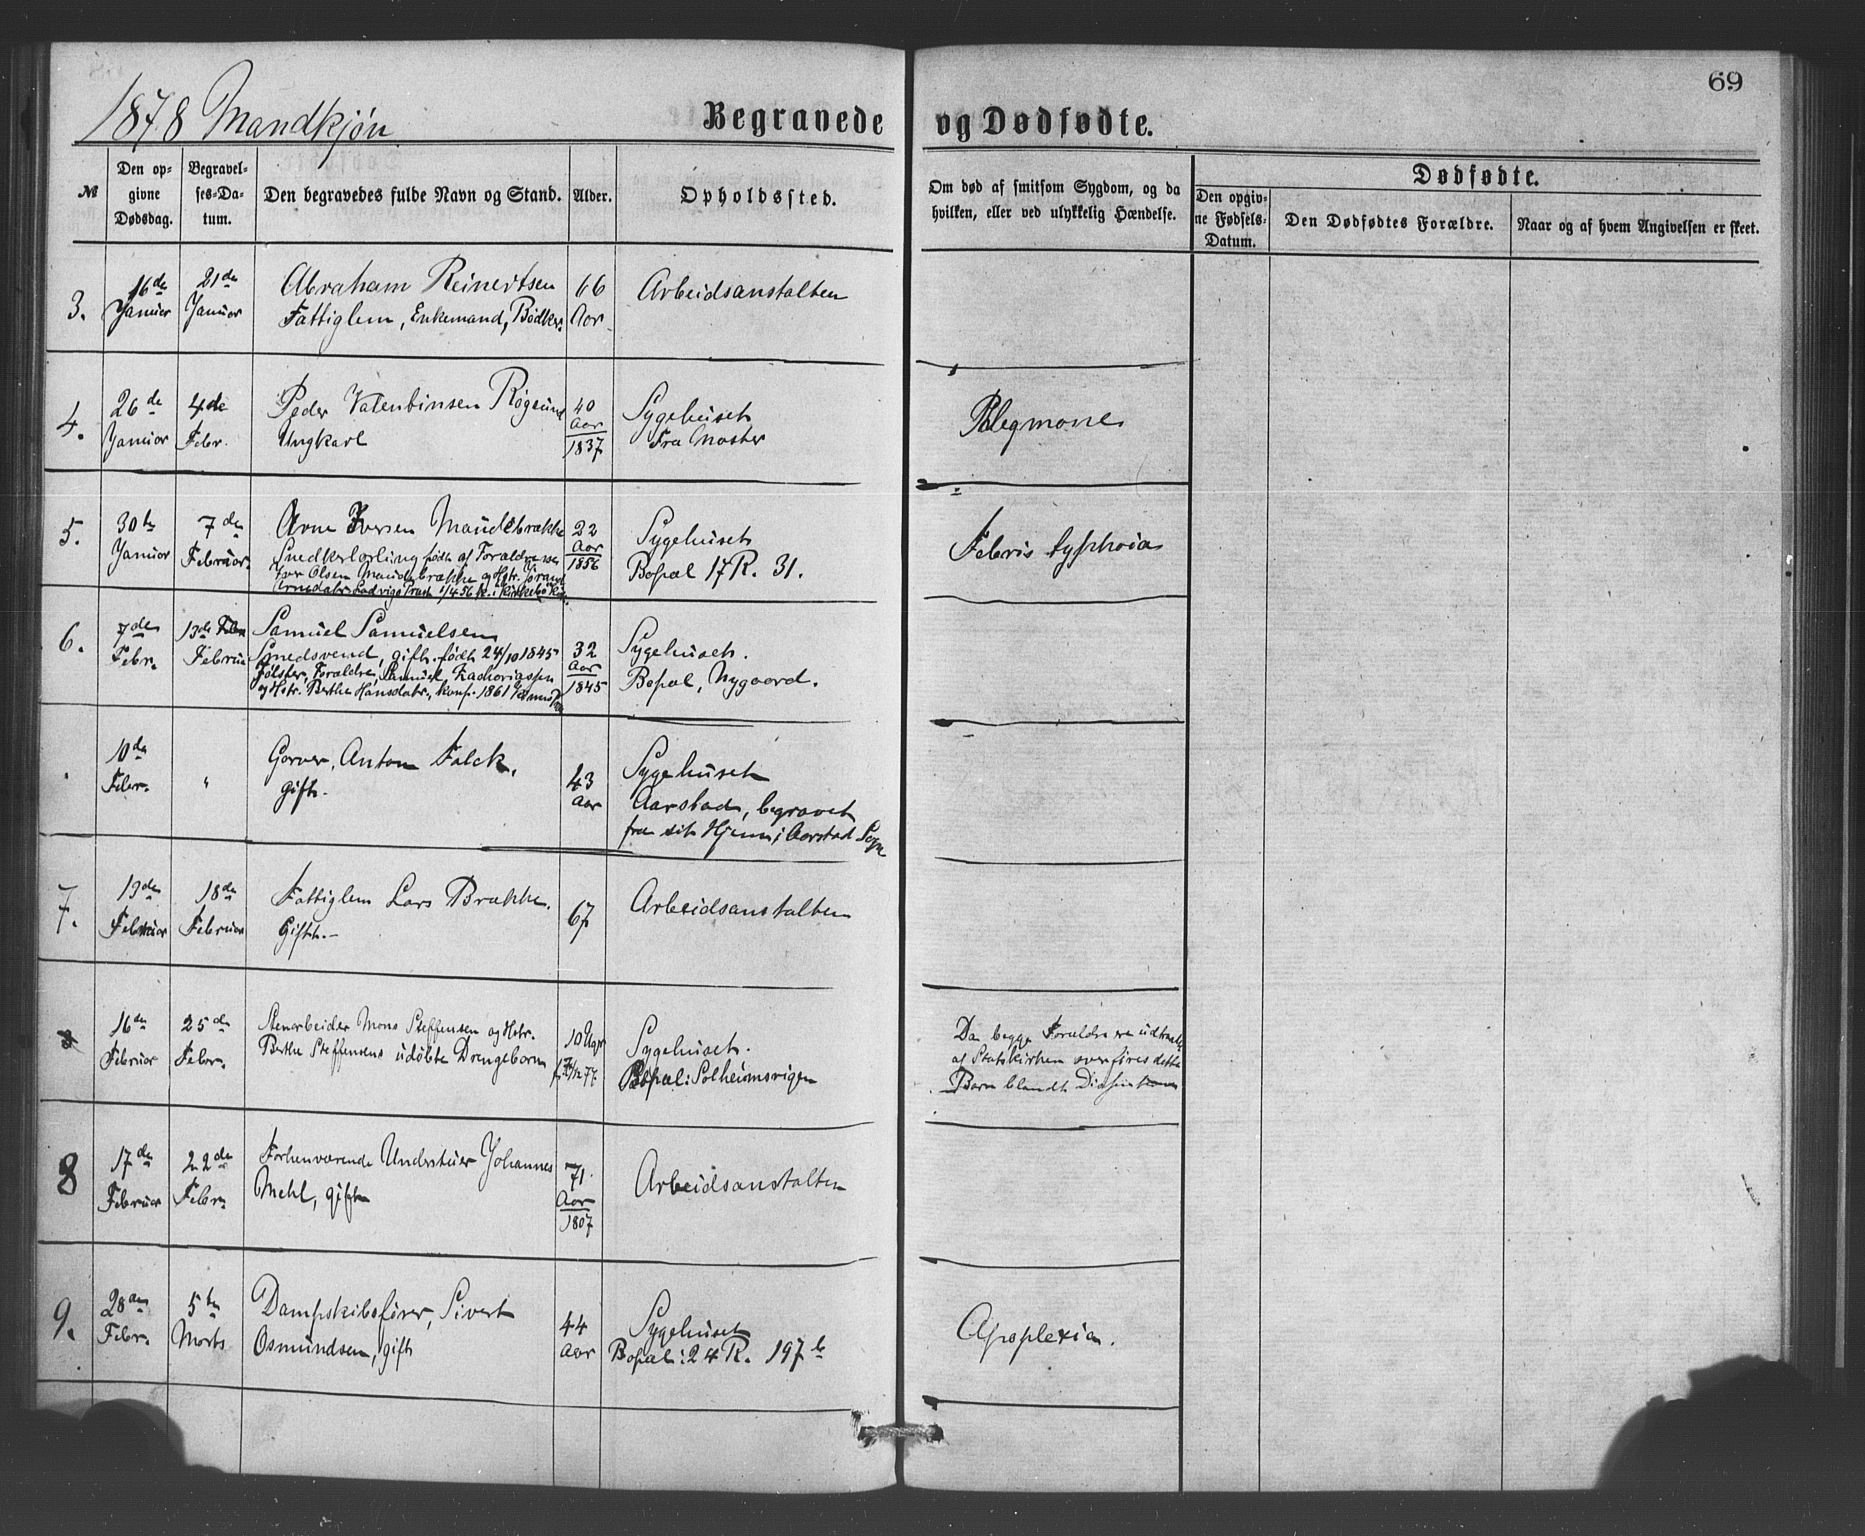 69
1878 Mandkjøn
Begravede og Dødfødte.
№
Den opgivne Dødsdag.
Begravelses-Datum.
Den begravedes fulde Navn og Stand.
Alder.
Opholdssted.
Om død af smitsom Sygdom, og da hvilken, eller ved ulykkelig Hændelse.
Dødfødte.
Den opgivne Fødsels-Datum.
Den Dødfødtes Forældre.
Naar og af hvem Angivelsen er skeet.
3.
16de Januar
21de Januar
Abraham Reinertsen
Fattiglem, Enkemand, Bødker
66 Aar
Arbeidsanstalten
4.
26de Januar
4de Febr.
Peder Valentinsen Røgsund
Ungkarl
40 Aar
1837
Sygehuset
Fra Moster
Phlegmone
5.
30te Januar
7de Februar.
Arne Iversen Maudebrække
Snedkerlærling født af Forældrene
Iver Olsen Maudebrække og Hstr.
22 Aar
1856
Sygehuset
Bopæl 17 R. 31.
Febris typhoia
6.
7de Febr.
13de Februar
Samuel Samuelsen
Smedsvend, gift. født 24/10 1845
Jølster, Forældre, Samuel Zachariassen
og Hstr. Berthe Hansdatr., konf. 1861
32 Aar
1845
Sygehuset.
Bopæl, Nygaard.
10de Febr.
"
Garver, Anton Falck.
gift.
43 Aar
Sygehuset
Aarstad, begravet
fra sit Hjem i Aarstad Sogn
7.
13de Februar
18de Februar
Fattiglem Lars Brække.
Gift.-
67
Arbeidsanstalten
16de Februar
25de Febr.
Stenarbeider Mons Steffensen og Hstr.
Berthe Steffensens udøbte Drengebarn
10 Uger
77
Sygehuset.
Bopæl: Solheimsvigen
Da begge Forældre ere udtraadte
af Statskirken overføres dette
Barn blandt Dissenterne
8
17de Februar
22de Febr.
Forhenværende Understuer Johannes
Mehl, gift
71 Aar
1807
Arbeidsanstalten
9.
28de Febr.
5te Marts
Dampskibsfører, Sivert
Osmundsen, gift
44 Aar
Sygehuset
Bopæl: 24 R. 197b
Apoplexia.